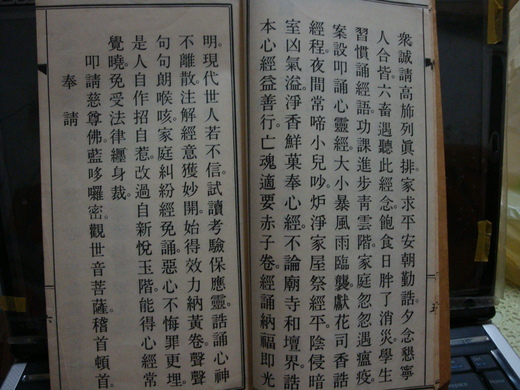 衆誠請高施列眞排家求平安朝勤誥夕念懇寧
人合皆。六畜遇聽此經念。飽食日胖了消災。學生
習慣誦經語。功課進步青雲階。家庭忽忽遇瘟疫
案設叩誦心靈經。大小暴風雨臨襲。獻花司香誥
經程。夜間常啼小兒吵。炉淨家屋祭經平。陰侵暗
室凶氣溢。淨香鮮菓奉心經。不論廟寺和壇界。誥
本心經益善行。亡魂適要赤子卷。經誦納福即光
明。現代世人若不信。試讀考驗保應靈。誥誦心神
不離散。注解經意獲妙開。始得效力納黃卷。聲聲
句句朗喉咳。家庭糾紛經免誦。惡心不悔罪更埋
是人自作招自惹。改過自新悅玉階。能得心經常
覺曉。免受法律纏身裁。
叩請慈尊佛。藍哆囉密。觀世音菩薩。稽首頓首
奉請